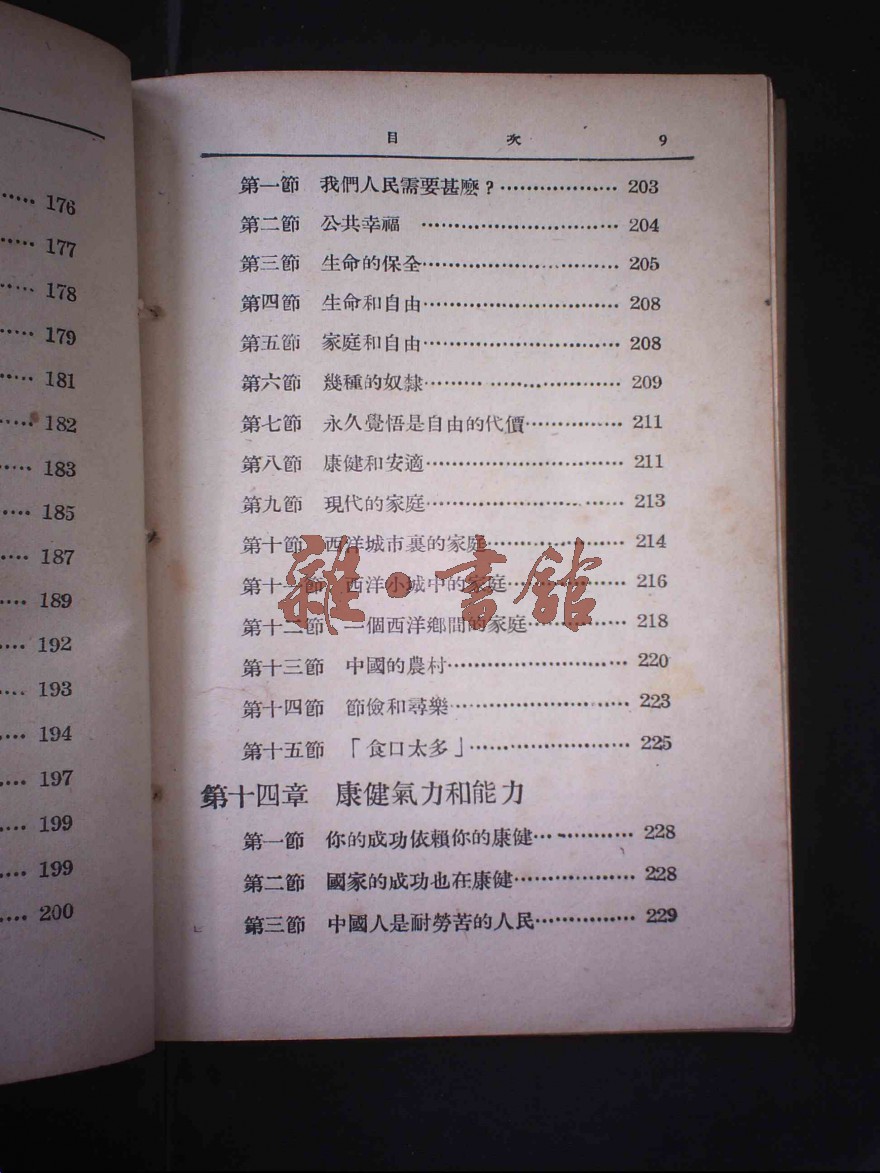 176
177
178
179
181
182
183
185
187
189
192
193
194
197
199
199
200
目 次 9
第一節 我們人民需要甚麽?·················· 203
第二節 公共幸福 ······························ 204
第三節 生命的保全······························ 205
第四節 生命和自由······························ 208
第五節 家庭和自由······························ 208
第六節 幾種的奴隸······························ 209
第七節 永久覺悟是自由的代價··············· 211
第八節 康健和安適······························ 211
第九節 現代的家庭······························ 213
第十節 西洋城市裏的家庭····················· 214
第十一節 西洋小城中的家庭·················· 216
第十二節 一個西洋鄉間的家庭··············· 218
第十三節 中國的農村··························· 220
第十四節 節儉和尋樂··························· 223
第十五節 「食口太多」························ 225
雜·書館
第十四章 康健氣力和能力
第一節 你的成功依賴你的康健··············· 228
第二節 國家的成功也在康健·················· 228
第三節 中國人是耐勞苦的人民··············· 229